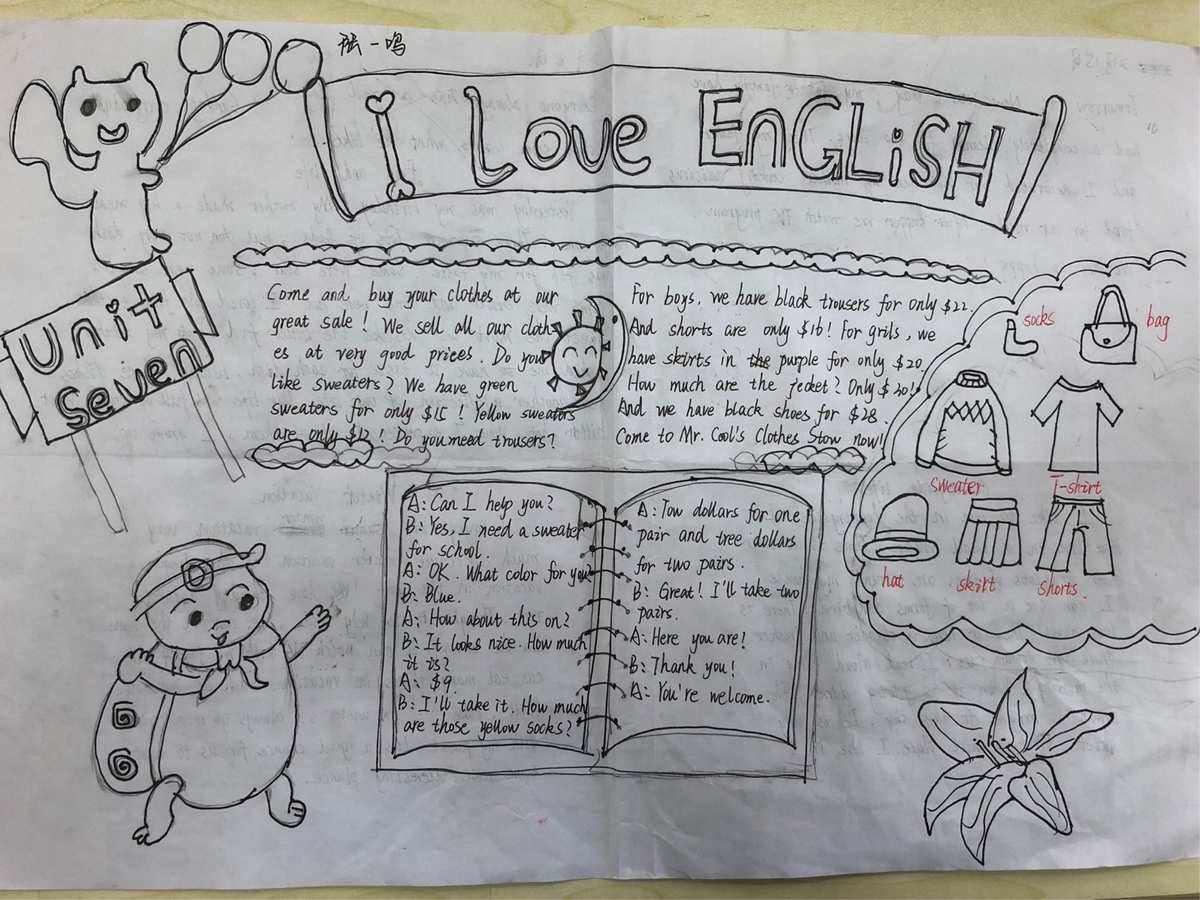 张一鸣
I LOVE ENGLISH
Unit
Seven
Come and buy your clothes at our
great sale! We sell all our cloth
es at very good prices. Do you
like sweaters? We have green
sweaters for only $15! Yellow sweaters
are only $12! Do you need trousers?
For boys, we have black trousers for only $22.
And shorts are only $16! For grils, we
have skirts in the purple for only $20
How much are the jecket? Only $30!
And we have black shoes for $28.
Come to Mr. Cool's Clothes Stow now!
socks
bag
sweater
T-shirt
hat
skirt
shorts.
A: Can I help you?
B: Yes, I need a sweater
for school.
A: OK. What color for you
B: Blue.
A: How about this on?
B: It looks nice. How much
it is?
A: $9.
B: I'll take it. How much
are those yellow socks?
A: Tow dollars for one
pair and tree dollars
for two pairs.
B: Great! I'll take two
pairs.
A: Here you are!
B: Thank you!
A: You're welcome.